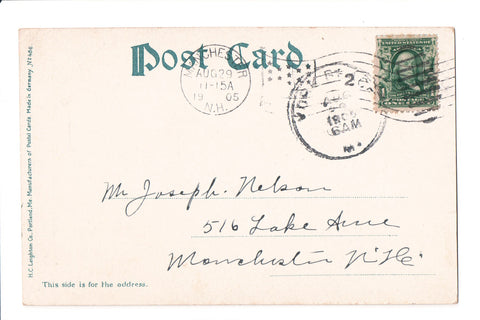 Post Card
MANCHESTER
AUG 29
11-15A
19 05
N.H.
2
6AM
UNITED STATES OF
Mr Joseph. Nelson
516 Lake Ave
Manchester N.H.
This side is for the address.
H.C. Leighton Co., Portland, Me. Manufacturers of Postal Cards. Made in Germany. No